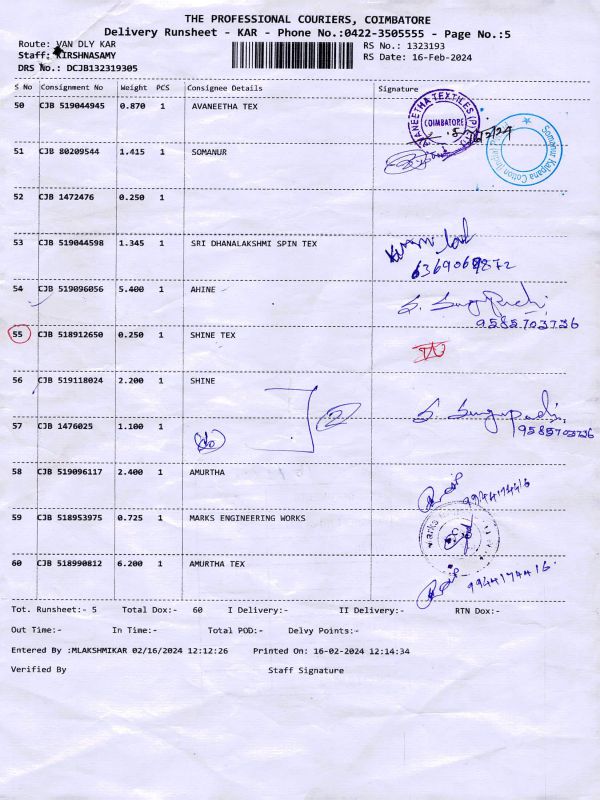 THE PROFESSIONAL COURIERS, COIMBATORE
Delivery Runsheet - KAR - Phone No.:0422-3505555 - Page No.:5
Route: VAN DLY KAR
RS No.: 1323193
Staff: KIRSHNASAMY
RS Date: 16-Feb-2024
DRS No.: DCJB132319305
S No Consignment No Weight PCS Consignee Details Signature
50 CJB 519044945 0.870 1 AVANEETHA TEX
COIMBATORE
51 CJB 80209544 1.415 1 SOMANUR
Somanur Kalpana Cotton
52 CJB 1472476 0.250 1
53 CJB 519044598 1.345 1 SRI DHANALAKSHMI SPIN TEX
54 CJB 519096056 5.400 1 AHINE
9585703736
55 CJB 518912650 0.250 1 SHINE TEX
56 CJB 519118024 2.200 1 SHINE
2
57 CJB 1476025 1.100 1
9585703736
58 CJB 519096117 2.400 1 AMURTHA
59 CJB 518953975 0.725 1 MARKS ENGINEERING WORKS
60 CJB 518990812 6.200 1 AMURTHA TEX
9944174416.
Tot. Runsheet:- 5 Total Dox:- 60 I Delivery:- II Delivery:- RTN Dox:-
Out Time:- In Time:- Total POD:- Delvy Points:-
Entered By :MLAKSHMIKAR 02/16/2024 12:12:26 Printed On: 16-02-2024 12:14:34
Verified By Staff Signature